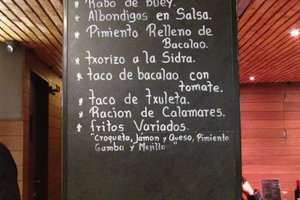 * Rabo de buey.
* Albondigas en Salsa.
* Pimiento Relleno de
Bacalao.
* txorizo a la Sidra.
* taco de bacalao con
tomate.
* taco de txuleta.
* Racion de Calamares.
* fritos Variados.
"Croqueta, Jamon y Queso, Pimiento
Gamba y Mejillo"